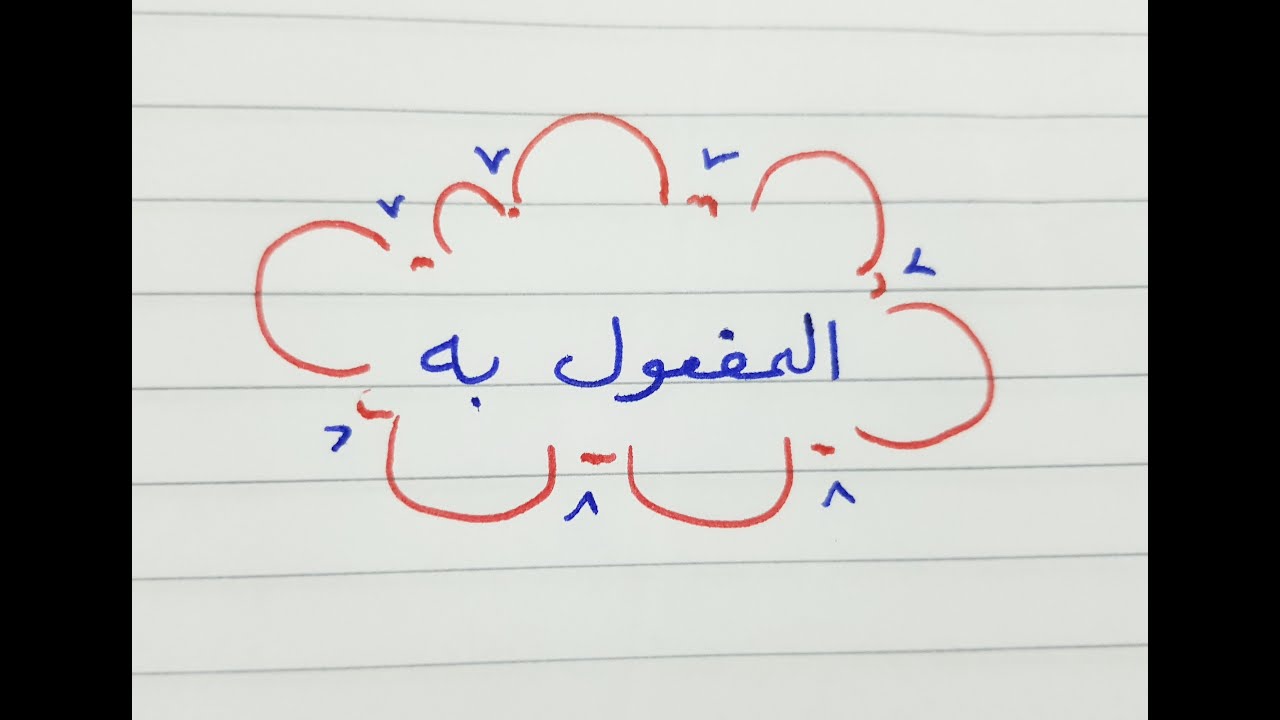 المفعول به